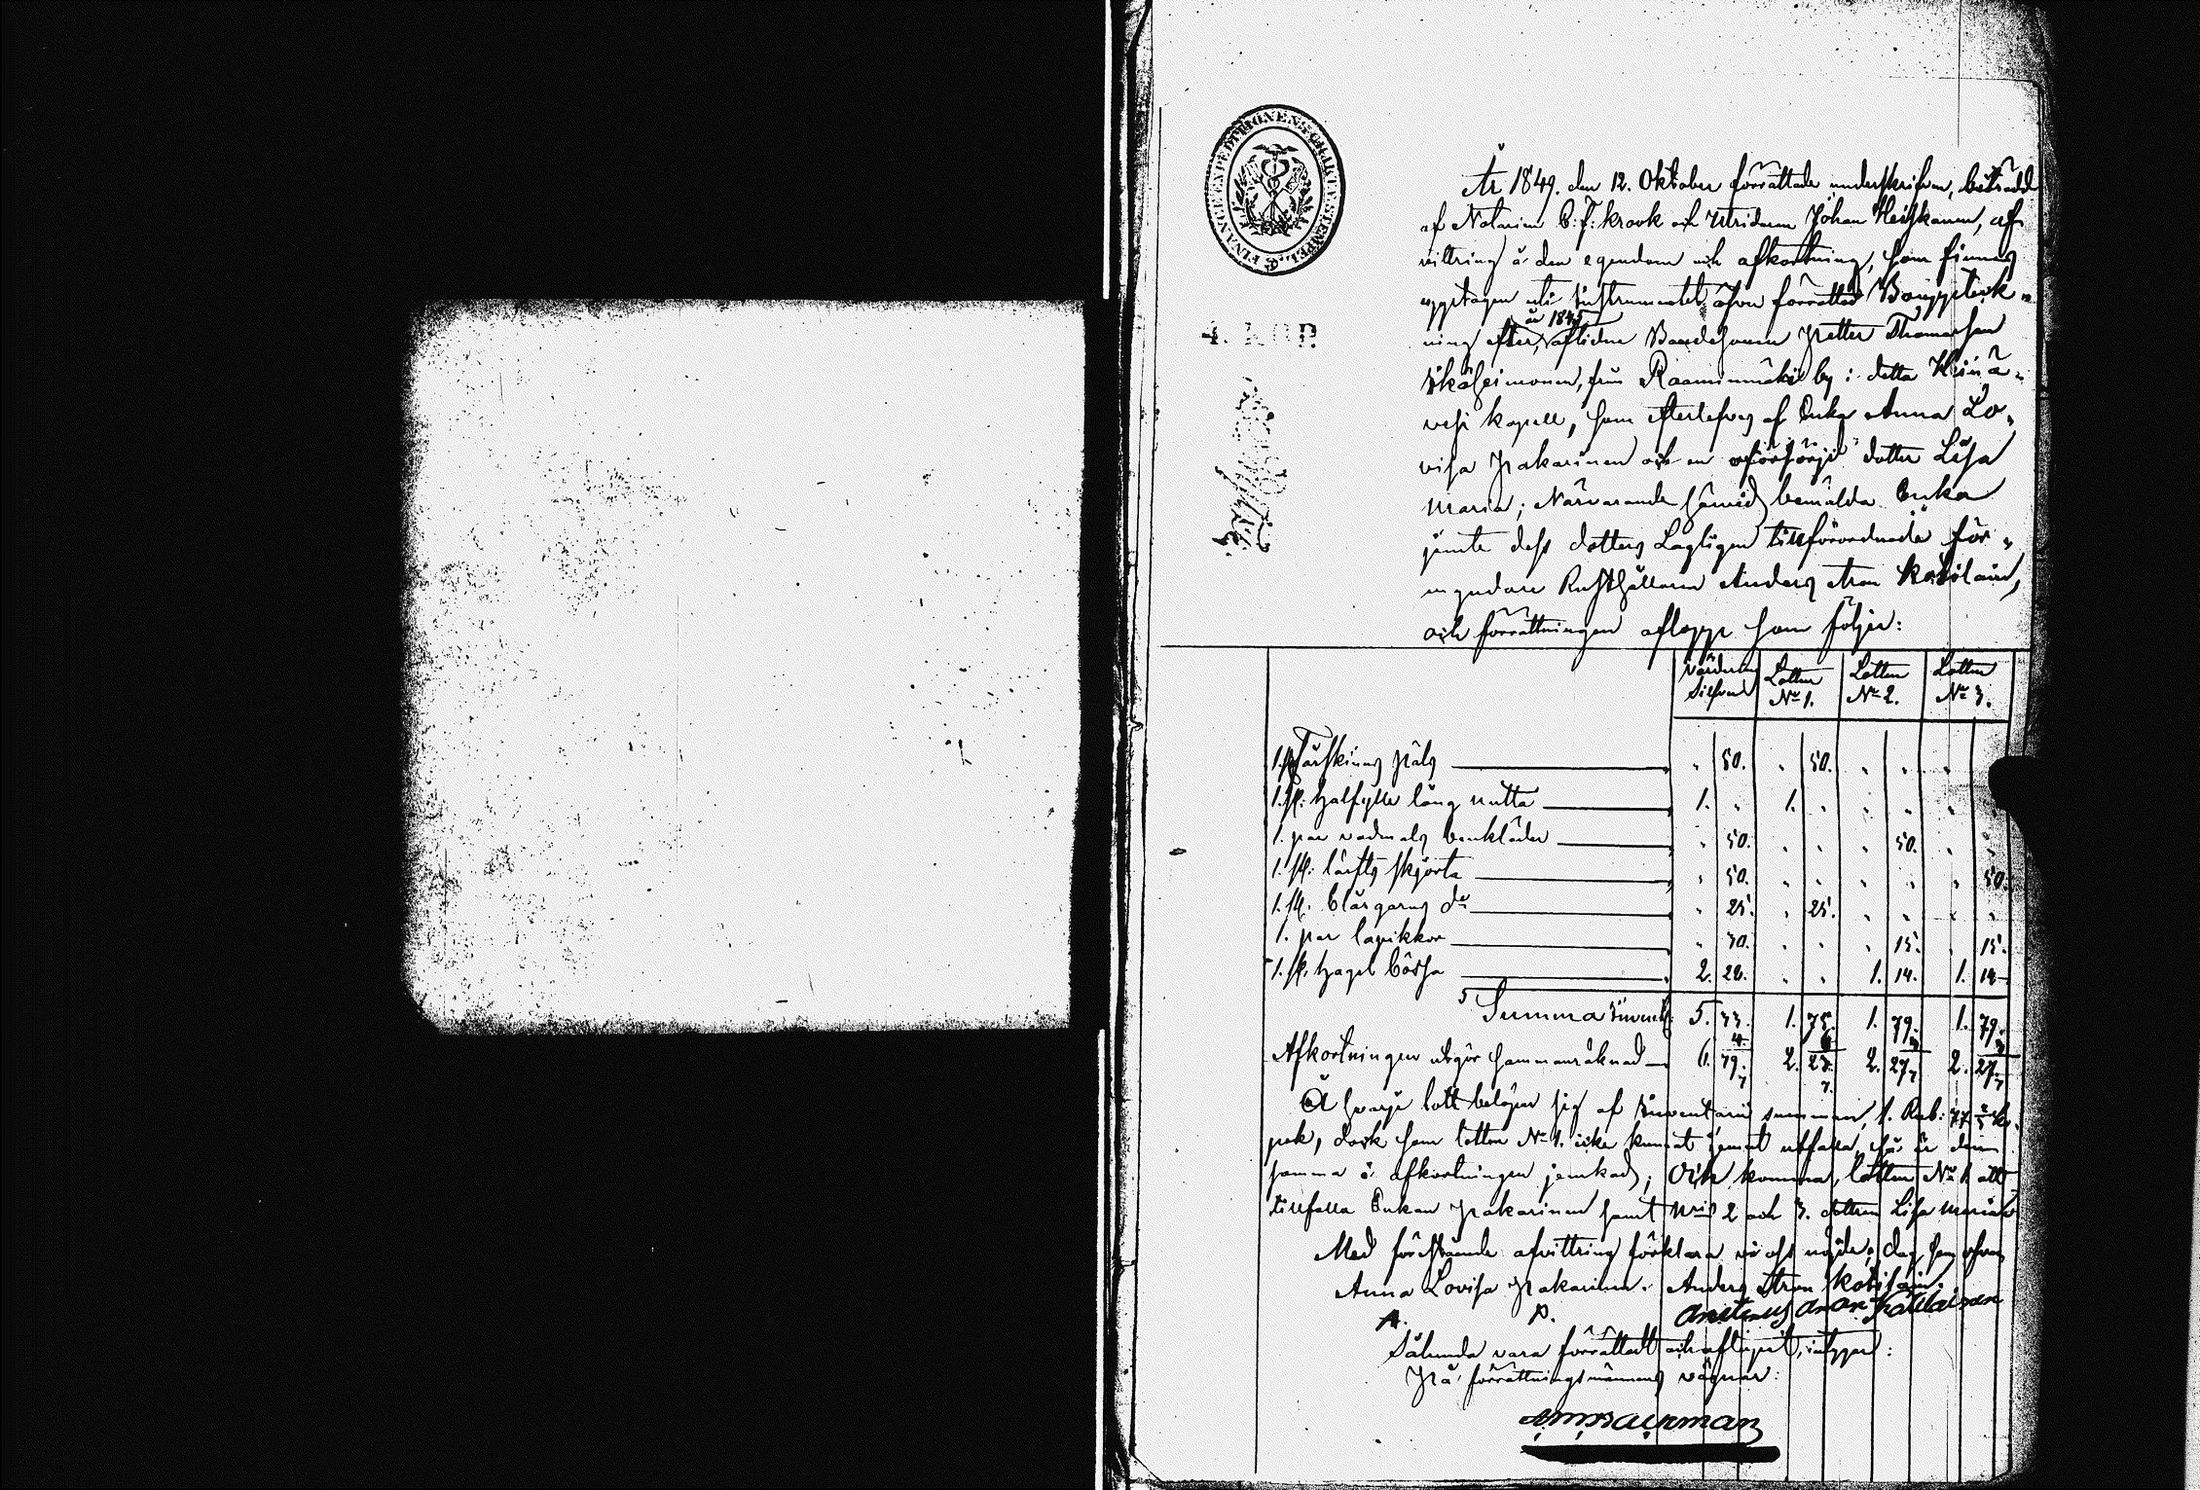 FINANCE EXPEDITIONENS CHARTÆ STEMPEL
4. KOP.
År 1849. den 12. Oktober förrättade underskrifven, biträdd
af Notarien C: F: Krook och Utridaren Johan Heiskanen, af
vittring å den egendom och afkortning, som finnes
upptagen uti Instrumentet öfver förrättad Bouppteck-
ning efter år 1845 aflidne Bondesonen Petter Thomasson
Ikäheimonen, från Raaminmäki by i detta Heinä-
vesi kapell, som efterlefves af Enka Anna Lo-
visa Pakarinen och en oförsörjd dotter Lisa
Maria; Närvarande härvid bemälda Enka
jemte dess dotters Lagligen tillförordnade för-
myndare Rusthållaren Anders Aron Kotilain,
och förrättningen aflopp som följer:
Värderin Silfver Lotten No 1. Lotten No 2. Lotten No 3.
1. Fårskinns päls " 50. " 50. " " "
1. st. Halfylle lång mutta 1. " 1. " " " "
1. par vadmals benkläder " 50. " " " 50. " "
1. st. lärfts skjorta " 50. " " " " " 50.
1. st. blårgarns do " 25. " 25. " " " "
1. par lapikkor " 30. " " " 15. " 15.
1. st. Hagel bössa 2. 28. " " 1. 14. 1. 14
Summa Invent: 5. 33. 1. 75. 1. 79. 1. 79.
Afkortningen utgör sammanräknad 6. 79. 2. 23. 2. 27. 2. 27.
Å hvarje lott belöper sig af Inventarii summan, 1. Rub: 77
pek, dock som lotten No 1. icke kunnat jemnt utfalla, så är den
samma i afkortningen jemkad; Och komma, lotten No 1 att
tillfalla Enkan Pakarinen samt Nris 2 och 3. dottren Lisa Maria
Med förestående afvittring förklara vi oss nöjde; dag som ofvan
Anna Lovisa Pakarinen. Anders Aron Kotilain.
A. P. Anders Aron Kotilainen
Sålunda vara förrättadt och aflupit, intygar:
På förrättningsmännens vägnar: